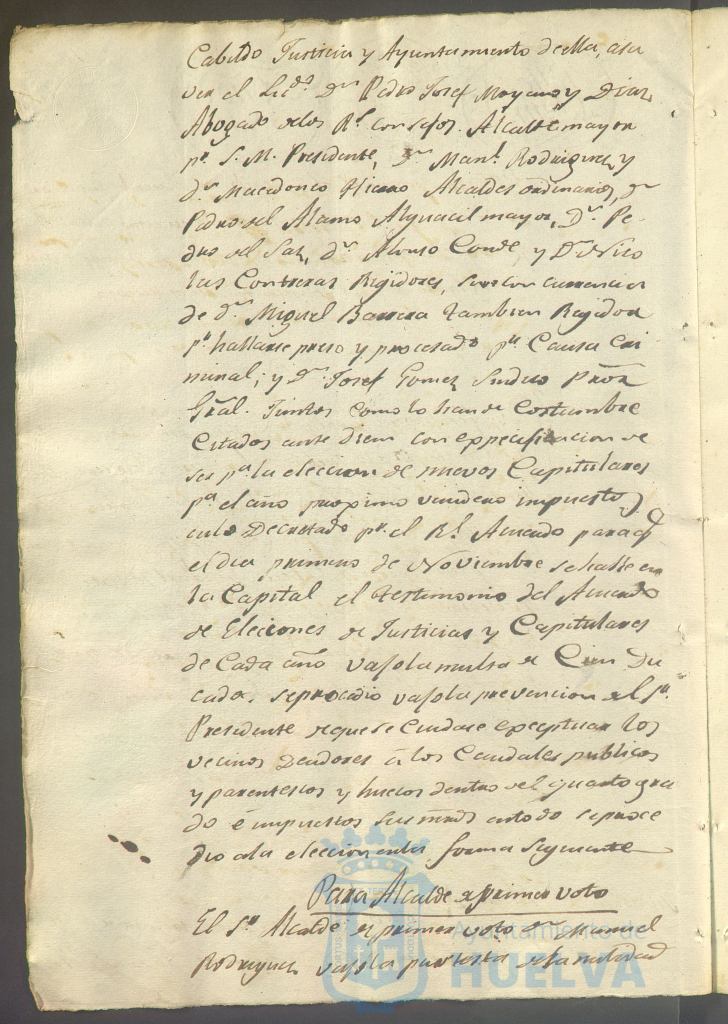 Cabildo Justicia y Ayuntamiento de ella, asa
ver el Lic.do D.n Pedro Josef Moyano y Diaz,
Abogado delos R.s consejos. Alcalde mayor
p.r S. M. Presidente, D.n Man.l Rodriguez, y
d.n Macedonio Alcaldes ordinarios, D.n
Pedro del Alamo Alguacil mayor, D.n Pe-
dro del Saz, d.n Alonso Conde y D.n Nico
las Contreras Regidores, sin concurrencia
de d.n Miguel Barrera tambien Regidor
p.r hallarse preso y procesado p.r Causa Cri
minal; y D.n Josef Gomez Sindico Pror
Gral. Juntos como lo han de Costumbre
Citados ante diem con expecificacion de
ser p.a la eleccion de nuevos Capitulares
p.a el año proximo venidero impuestos
enlo Decretado p.r el R.l Acuerdo para q
el dia primero de Noviembre se halle en
la Capital el testimonio del Acuerdo
de Elecciones de Justicias y Capitulares
de Cada año vajo la multa de Cien Du
cados, se procedio vajo la prevencion del S.r
Presidente de que se Cuidase exceptuar los
vecinos Deudores à los Caudales publicos
y parentescos y huecos dentro del quarto gra
do è impuestos sus mrds en todo se proce
dio ala eleccion enla forma siguiente
Para Alcalde de primer voto
El S.r Alcalde de primer voto D.n Manuel
Rodriguez vajo la protesta dela nulidad
Ayuntamiento de
HUELVA